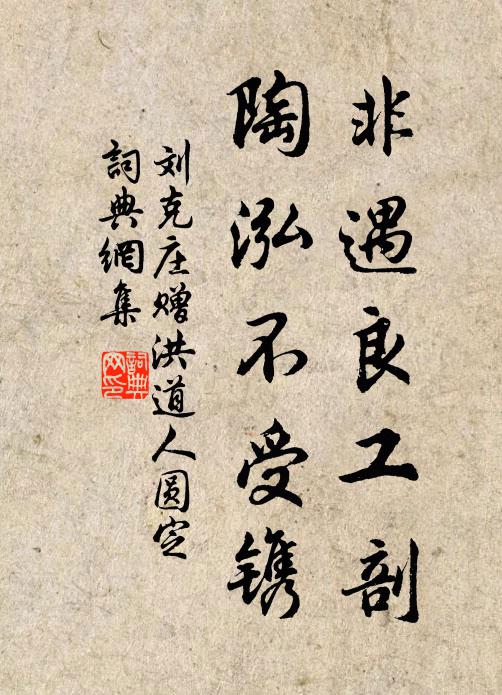 非遇良工剖
陶泓不受镌
刘克庄赠洪道人圆定
詞典網集
詞典
网印